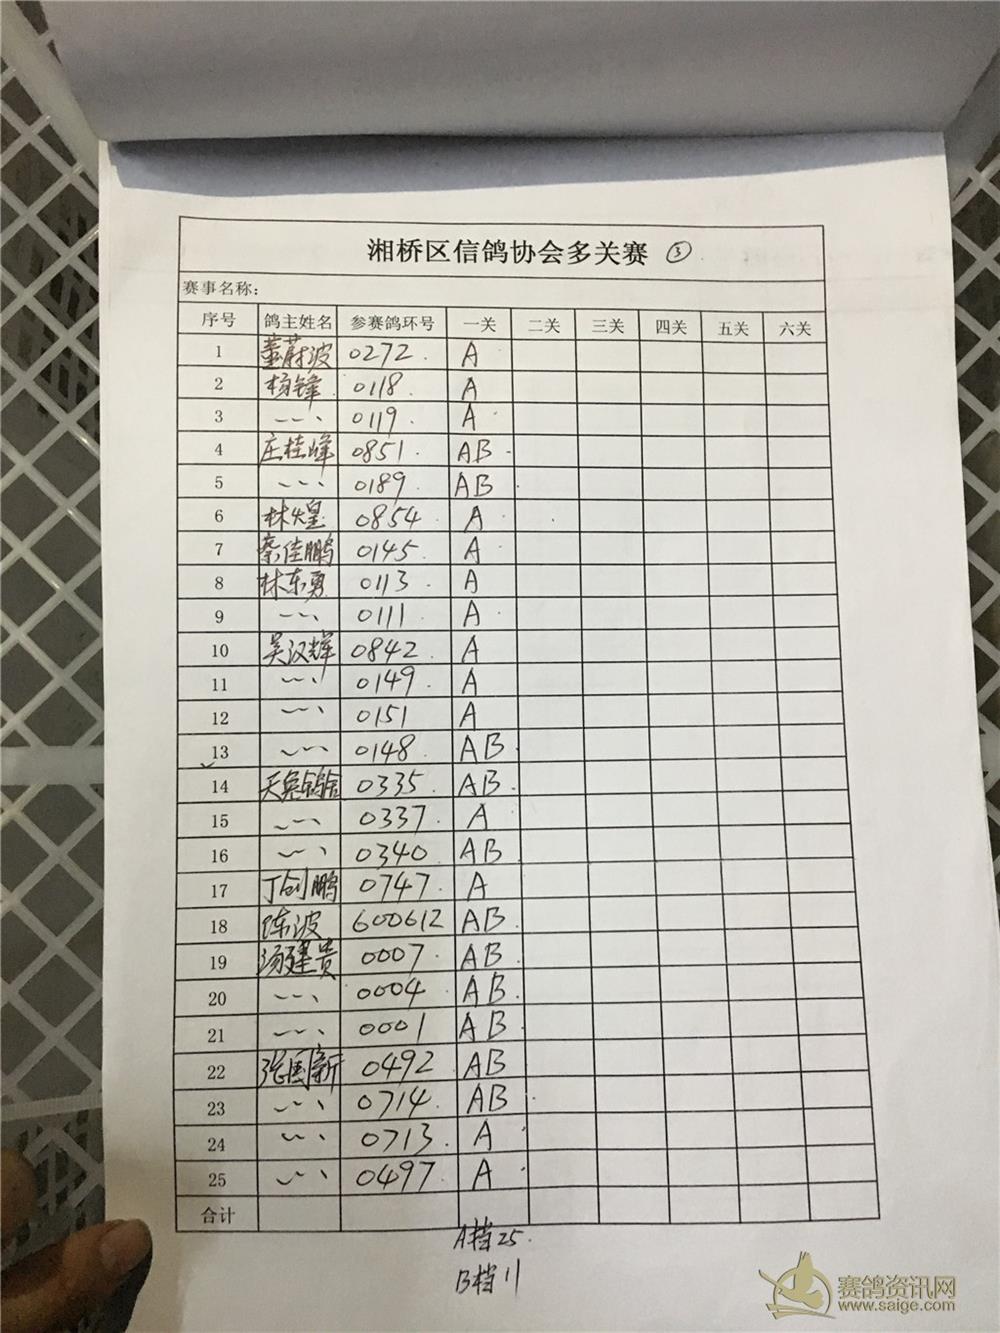 湘桥区信鸽协会多关赛 ③
赛事名称:
序号 鸽主姓名 参赛鸽环号 一关 二关 三关 四关 五关 六关
1 董蔚波 0272 A
2 杨锋 0118 A
3 〃 0119 A
4 庄桂峰 0851 AB
5 〃 0189 AB
6 林煌 0854 A
7 蔡佳鹏 0145 A
8 林东勇 0113 A
9 〃 0111 A
10 吴汉辉 0842 A
11 〃 0149 A
12 〃 0151 A
13 〃 0148 AB
14 0335 AB
15 〃 0337 A
16 〃 0340 AB
17 丁剑鹏 0747 A
18 陈波 600612 AB
19 汤建贵 0007 AB
20 〃 0004 AB
21 〃 0001 AB
22 张国新 0492 AB
23 〃 0714 AB
24 〃 0713 A
25 〃 0497 A
合计
A档25
B档11
赛鸽资讯网
www.saige.com